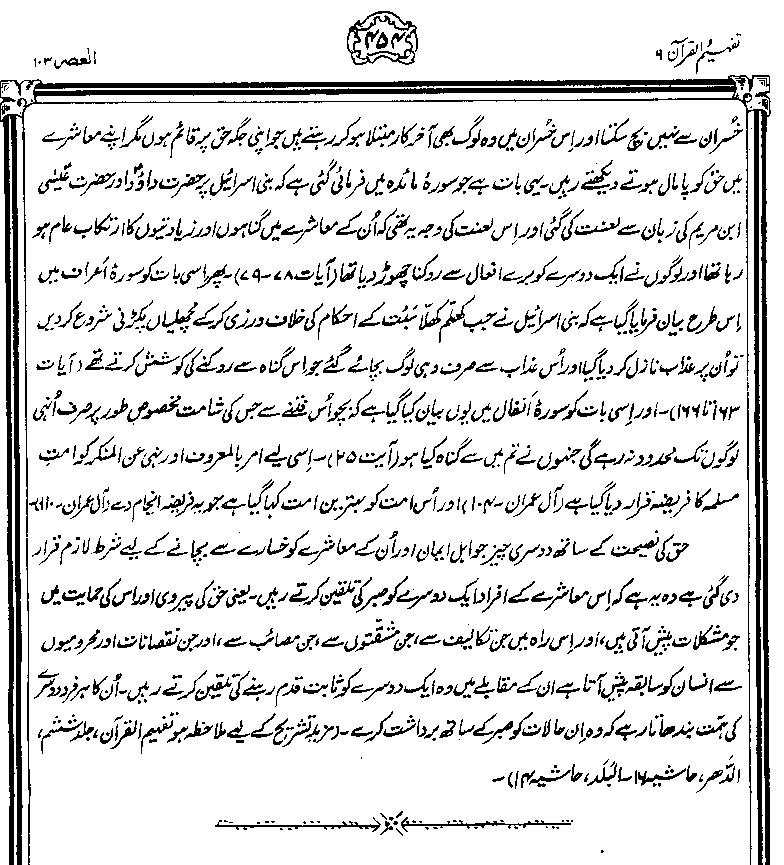 تفہیم القرآن ۶
۴۵۴
العصر ۱۰۳
خُسران سے نہیں بچ سکتا اور اِس خُسران میں وہ لوگ بھی آخرکار مبتلا ہو کر رہتے ہیں جو اپنی جگہ حق پر قائم ہوں مگر اپنے معاشرے
میں حق کو پامال ہوتے دیکھتے رہیں۔ یہی بات ہے جو سورۂ مائدہ میں فرمائی گئی ہے کہ بنی اسرائیل پر حضرت داؤدؑ اور حضرت عیسٰی
ابن مریم کی زبان سے لعنت کی گئی اور اِس لعنت کی وجہ یہ تھی کہ اُن کے معاشرے میں گناہوں اور زیادتیوں کا ارتکاب عام ہو
رہا تھا اور لوگوں نے ایک دوسرے کو برے افعال سے روکنا چھوڑ دیا تھا (آیات ۷۸-۷۹)۔ پھر اسی بات کو سورۂ اَعراف میں
اِس طرح بیان فرمایا گیا ہے کہ بنی اسرائیل نے جب کھلم کھلّا سَبْت کے احکام کی خلاف ورزی کر کے مچھلیاں پکڑنی شروع کر دیں
تو اُن پر عذاب نازل کر دیا گیا اور اُس عذاب سے صرف وہی لوگ بچائے گئے جو اس گناہ سے روکنے کی کوشش کرتے تھے (آیات
۱۶۳ تا ۱۶۶)۔ اور اِسی بات کو سورۂ انفال میں یوں بیان کیا گیا ہے کہ بچو اُس فتنے سے جس کی شامت مخصوص طور پر صرف اُنہی
لوگوں تک محدود نہ رہے گی جنہوں نے تم میں سے گناہ کیا ہو (آیت ۲۵)۔ اِسی لیے امر بالمعروف اور نہی عن المنکر کو امتِ
مسلمہ کا فریضہ قرار دیا گیا ہے (آل عمران۔ ۱۰۴) اور اُس امت کو بہترین امت کہا گیا ہے جو یہ فریضہ انجام دے (آل عمران۔ ۱۱۰)۔
حق کی نصیحت کے ساتھ دوسری چیز جو اہلِ ایمان اور اُن کے معاشرے کو خسارے سے بچانے کے لیے شرطِ لازم قرار
دی گئی ہے وہ یہ ہے کہ اِس معاشرے کے افراد ایک دوسرے کو صبر کی تلقین کرتے رہیں۔ یعنی حق کی پیروی اور اس کی حمایت میں
جو مشکلات پیش آتی ہیں، اور اِس راہ میں جن تکالیف سے، جن مشقّتوں سے، جن مصائب سے، اور جن نقصانات اور محرومیوں
سے انسان کو سابقہ پیش آتا ہے ان کے مقابلے میں وہ ایک دوسرے کو ثابت قدم رہنے کی تلقین کرتے رہیں۔ اُن کا ہر فرد دوسرے
کی ہمت بندھاتا رہے کہ وہ اِن حالات کو صبر کے ساتھ برداشت کرے۔ (مزید تشریح کے لیے ملاحظہ ہو تفہیم القرآن، جلد ششم،
الدَّھر، حاشیہ ۱۶۔ البَلَد، حاشیہ ۱۴)۔